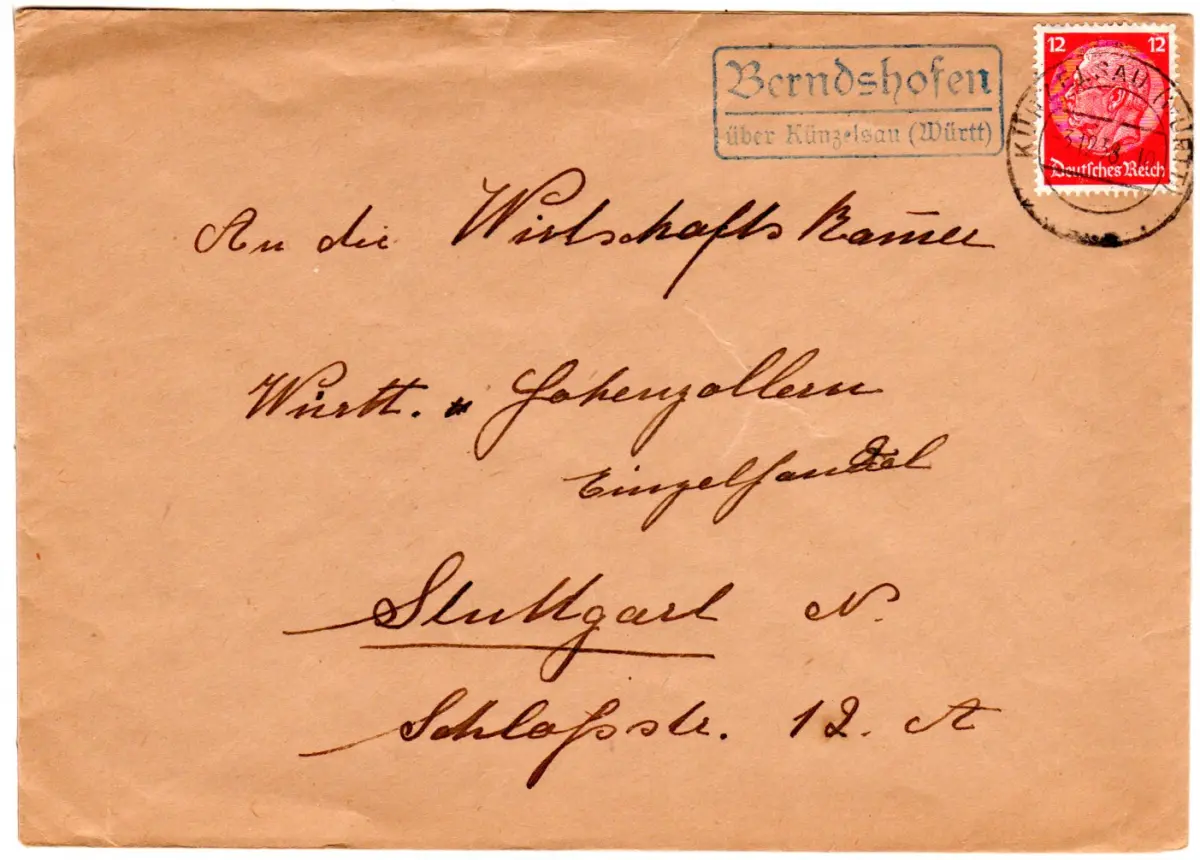 Berndshofen
über Künzelsau (Württ)
12 12
Deutsches Reich
KÜNZELSAU (WÜRTT)
An die Wirtschaftskam̅er
Württ. u Hohenzollern
Einzelhandel
Stuttgart N.
Schloßstr. 12. A